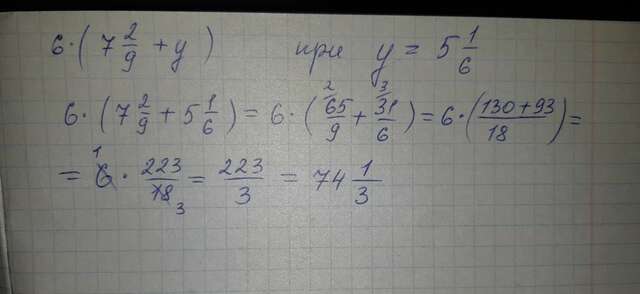 6·(7 2/9 + y) при y = 5 1/6
6·(7 2/9 + 5 1/6) = 6·(²⁄65/9 + ³⁄31/6) = 6·(130+93/18) =
= 6¹ · 223/18₃ = 223/3 = 74 1/3